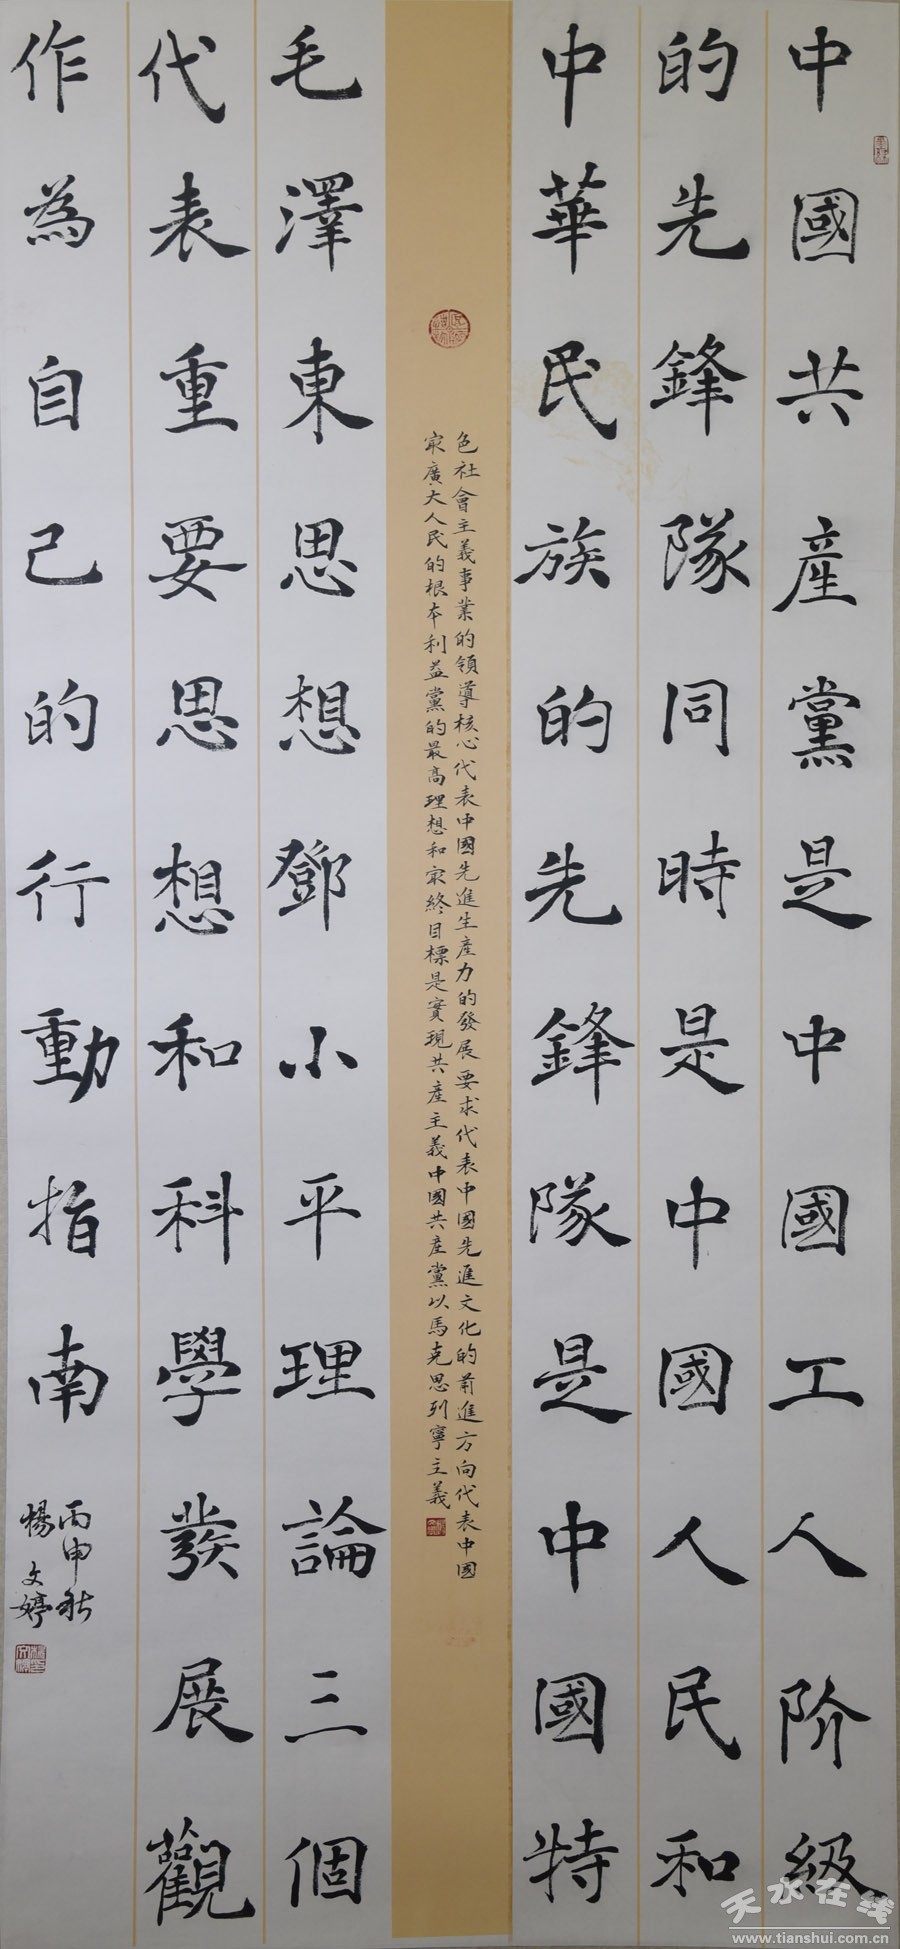 中國共產黨是中國工人阶級
的先鋒隊同時是中國人民和
中華民族的先鋒隊是中國特
色社會主義事業的領導核心代表中國先進生產力的發展要求代表中國先進文化的前進方向代表中國
冣廣大人民的根本利益黨的最高理想和冣終目標是實現共產主義中國共產黨以馬克思列寧主義
毛澤東思想鄧小平理論三個
代表重要思想和科學發展觀
作為自己的行動指南
丙申秋
楊文婷
天水在线
www.tianshui.com.cn